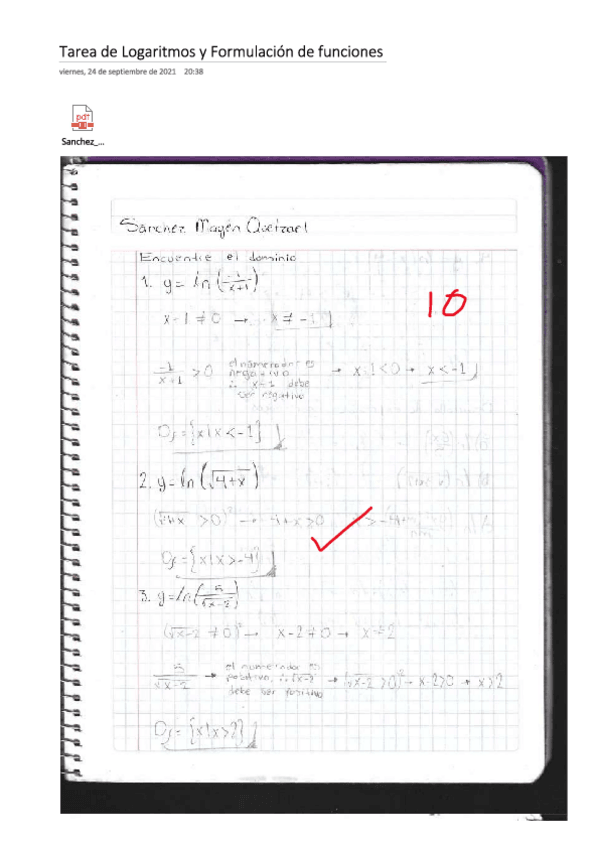 Tarea de Logaritmos y Formulación de funciones
viernes, 24 de septiembre de 2021 20:38
pdf
Sanchez_...
Sánchez Magén Quetzael
Encuentre el dominio
1. y = ln(-1/(x+1))
10
x+1 ≠ 0 → x ≠ -1
-1/(x+1) > 0 el numerador es negativo ∴ x+1 debe ser negativo → x+1 < 0 → x < -1
Df = {x|x < -1}
2. y = ln(√(4+x))
(√(4+x) > 0)² → 4+x > 0 → x > -4
Df = {x|x > -4}
3. y = ln(5/√(x-2))
(√(x-2) ≠ 0)² → x-2 ≠ 0 → x ≠ 2
5/√(x-2) → el numerador es positivo, ∴ √(x-2) debe ser positivo → (√(x-2) > 0)² → x-2 > 0 → x > 2
Df = {x|x > 2}